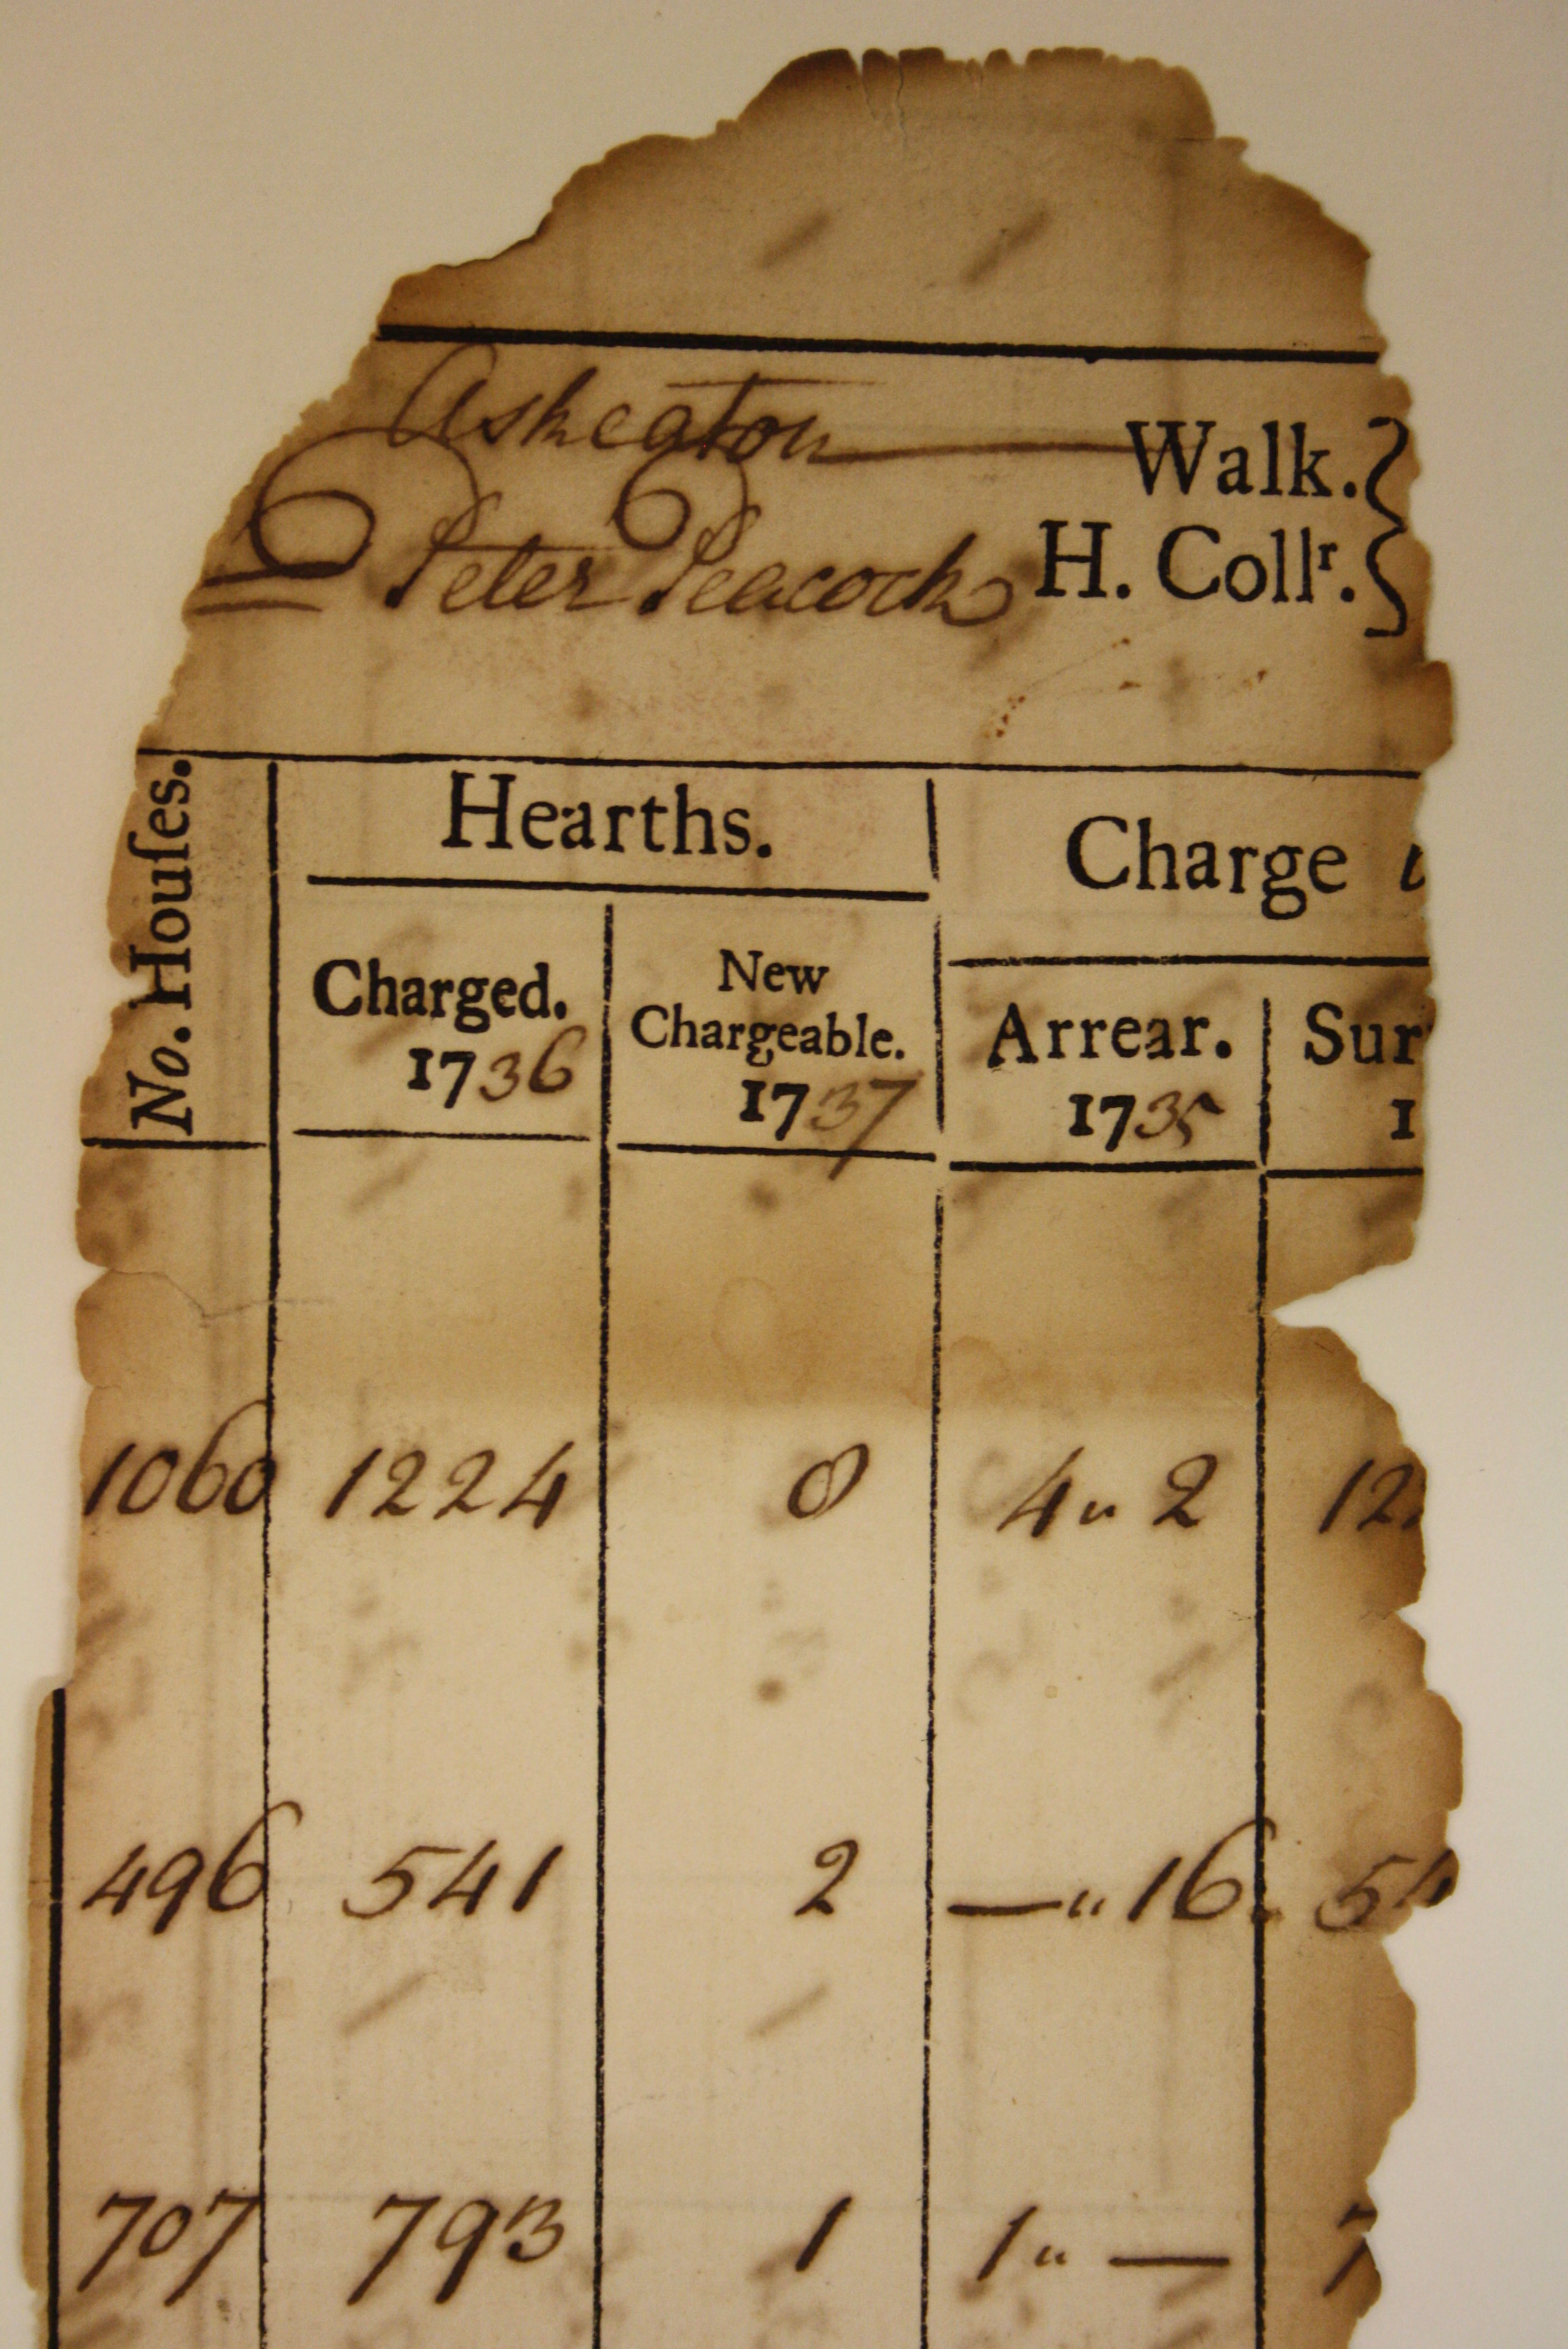 Askeaton Walk.
Peter Peacock H. Collr.
No. Houſes.
Hearths.
Charge
Charged.
1736
New
Chargeable.
1737
Arrear.
1735
Sur
1
1060 1224 8 4 " 2 12
496 541 2 — " 16 54
707 793 1 1 " — 7